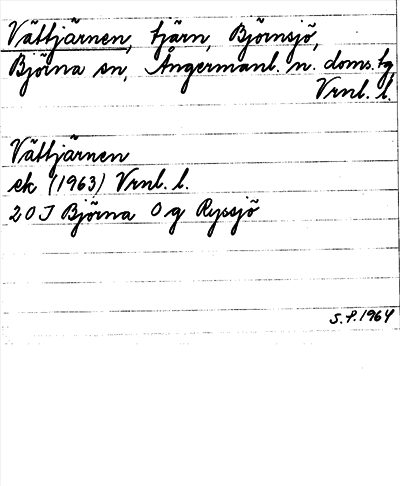 Vättjärnen, tjärn, Björnsjö,
Björna sn, Ångermanl. n. doms. tg
Vrnl. l.
Vättjärnen
ek (1963) Vrnl. l.
20 J Björna O g Ryssjö
S.P. 1964